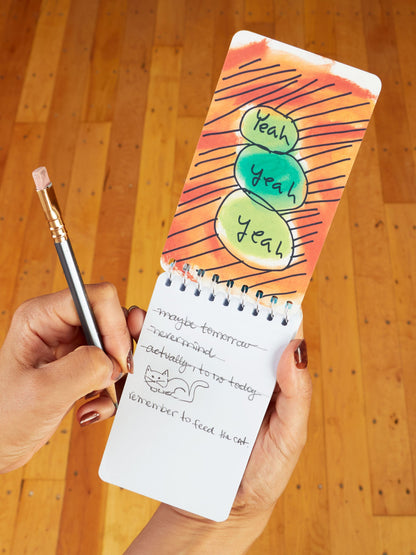 Yeah
yeah
yeah
maybe tomorrow
nevermind
actually, to no today
remember to feed the cat